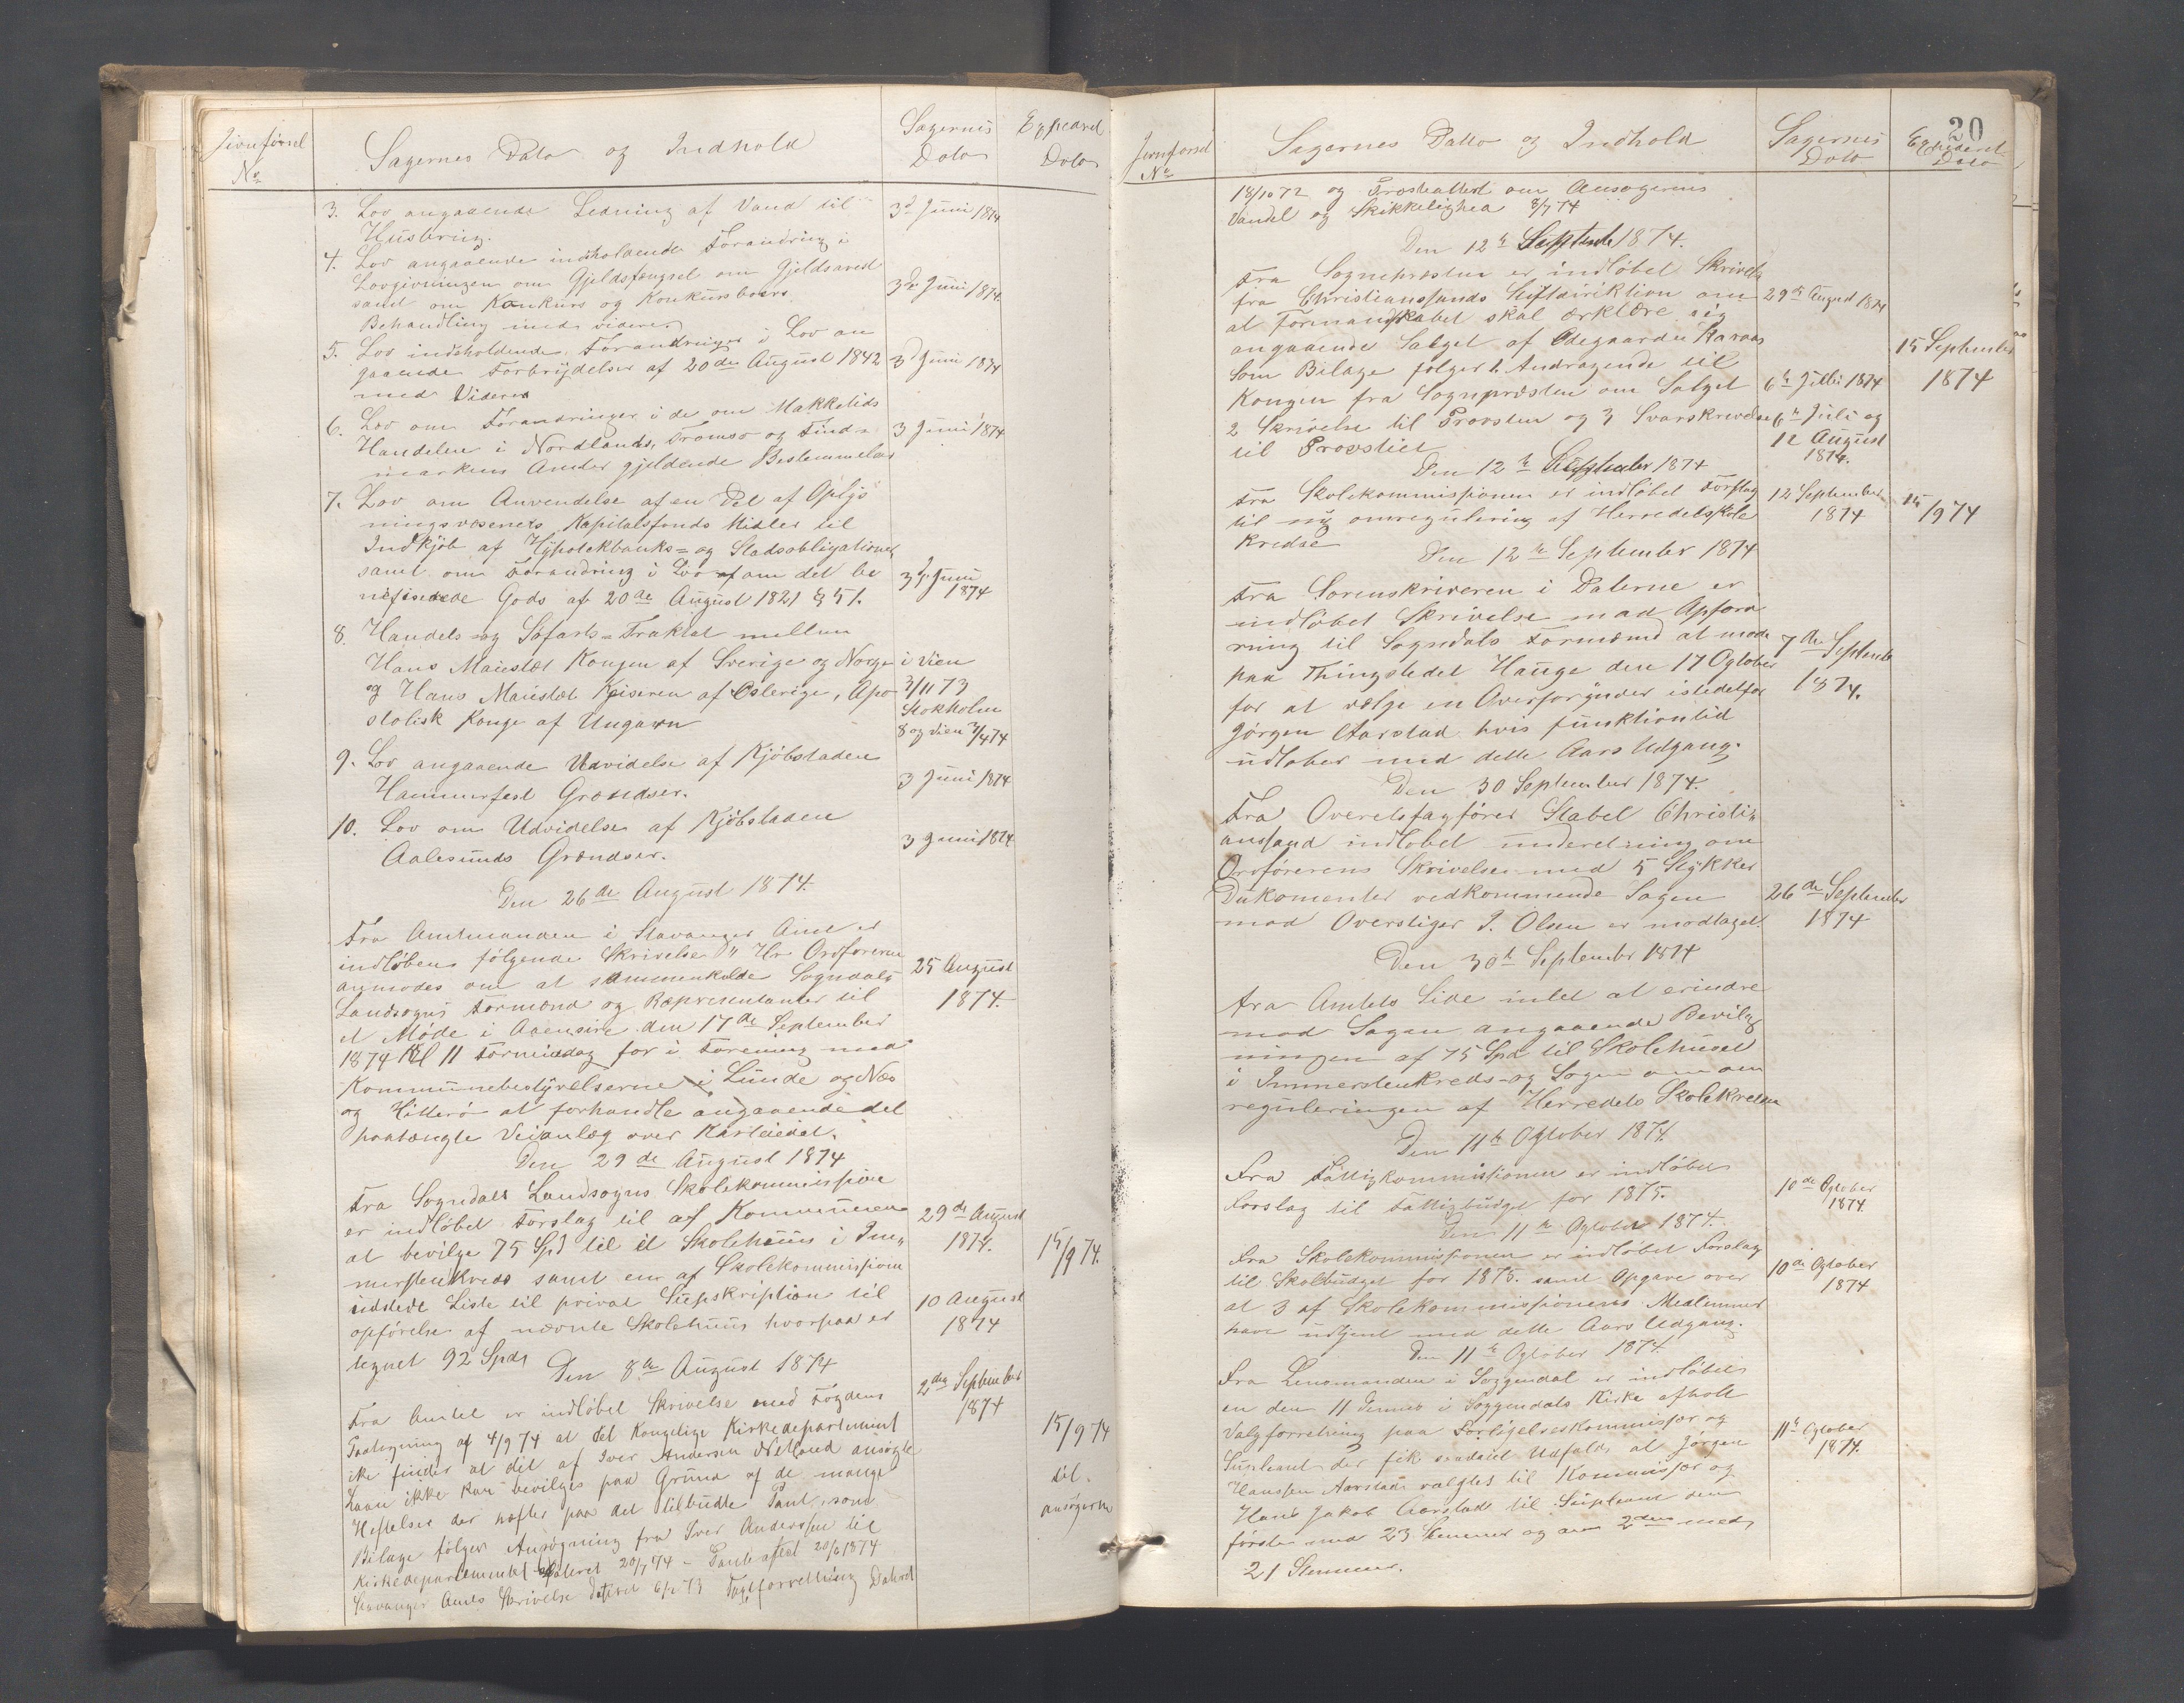 Jivnførsel
No
Sagernes Dato og Indhold
Sagernis
Dato
Expederet
Dato
3. Lov angaaende Ledning af Vand til
Husbrug.
3d Juni 1874
4. Lov angaaende indeholdende Forandring i
Lovgivningen om Gjeldsfængsel om Gjeldsarest
samt om Konkurs og Konkursboers
Behandling med videre.
3de Juni 1874
5. Lov indeholdende Forandringer i Lov an
gaaende Forbrydelser af 20de August 1842
med Videre
3d Juni 1874
6. Lov om Forandringer i de om Makkelids
Handelen i Nordlands, Tromsø og Find=
markens Amter gjeldende Bestemmelser
3 Juni 1874
7. Lov om Anvendelse af en Del af Oplys
ningsvæsenets Kapitalsfonds Midler til
Indkjøb af Hypotekbanks= og Stadsobligationer
samt om Forandring i Lov af om det be
nifiserede Gods af 20de August 1821 § 51.
3d Juni
1874
8. Handels-og Søfarts=Traktat mellem
Hans Maiestæt Kongen af Sverige og Norge
og Hans Maiestæt Keiseren af Østerige, Apo
stolisk Konge af Ungarn
i Vien
3/11 73
Stokholm
8 og Vien 3/4 74
9. Lov angaaende Udvidelse af Kjøbstaden
Hammerfest Grændser.
3 Juni 1874
10. Lov om Udvidelse af Kjøbstaden
Aalesunds Grændser.
3 Juni 1874
Den 26de August 1874.
Fra Amtmanden i Stavanger Amt er
indløben følgende Skrivelse " Hr Ordføreren
anmodes om at sammenkalde Sogndals
Landsogns Formænd og Repræsentanter til
et Møde i Aaensire den 17de September
1874 Kl 11 Formiddag for i Forening med
Kommunebestyrelserne i Lunde og Næs
og Hitterø at forhandle angaaende det
paatængte Veianlæg over Karteiedet.
25 August
1874.
Den 29de August 1874
Fra Sogndals Landsogns Skolekommission
er indløbet Forslag til af Kommunen
at bevilge 75 Spd til et Skolehuus i Im„
mersten Kreds samt en af Skolekommissionen
udstedt Liste til privat Supskription til
opførelse af nævnte Skolehuus hvorpaa er
tegnet 92 Spd
29de August
1874.
10 August
1874
15/9 74.
Den 8de August 1874
Fra Amtet er indløbet Skrivelse med Fogdens
Paategning af 4/9 74 at det Kongelige Kirkedepartement
ike finder at det af Iver Andersen Netland ansøgte
Laan ikke kan bevilges paa Grund af de mange
Heftelser der hæfter paa det tilbudte Pant, som
Bilage følger Ansøgning fra Iver Anderssen til
Kirkedepartementet dateret 20/7 74 - Pantattest 20/6 1874
Stavanger Amts Skrivelse Dateret 6/2 73 Taxtforrettning Dateret
2den September
1874
15/9 74
til.
ansøgeren
20
Jivnførsel
No
Sagernes Datto og Indhold
Sagernis
Dato
Expederet
Dato
18/10 72 og Presteattest om Ansøgerens
Vandel og Skikkelighed 8/7 74
Den 12te Septembr 1874.
Fra Sognepresten er indløbet Skrivelse
fra Christianssands Stiftdiriktion om
at Formandskabet skal ærklære sig
angaaende Salget af Ødegaarden Karaas
Som Bilage følger 1. Andragende til
Kongen fra Sognpresten om Salget
2 Skrivelse til Provsten og 3 Svarskrivelse
til Provstiet
29de August 1874
6te Julli 1874
6te Juli og
12 August
1874.
15 September
1874
Den 12te September 1874
Fra Skolekommissionen er indløbet Forslag
til ny omregulering af Herredets Skole
Kredse
12 September
1874
15/9 74
Den 12te September 1874
Fra Sorenskriveren i Dalerne er
indløbet Skrivelse med Opford
ring til Sogndals Formænd at møde
paa Thingstedet Hauge den 17 Ogtober
for at vælge en Overformynder istedetfor
Jørgen Aarstad hvis funktionstid
udløber med dette Aars Udgang.
7de Septembr
1874.
Den 30 September 1874.
Fra Overetsfagfører Stabel Christi„
anssand indløbet underetning om
Ordførerens Skrivelser med 5 Stykker
Dukomenter vedkommende Sagen
mod Overstiger J. Olsen er modtaget.
26de September
1874
Den 30te September 1874
fra Amtets Side intet at erindre
mod Sagen angaaende Bevilg
ningen af 75 Spd til Skolehuset
i Immerstenkreds- og Sagen om om
reguleringen af Herredets Skolekredse
Den 11te Ogtober 1874.
Fra Fattigkommissionen er indløbet
Forslag til Fattigbudget for 1875.
10de Ogtober
1874
Den 11te Ogtober 1874.
Fra Skolekommissionen er indløbet Forslag
til Skolbudget for 1875. samt Opgave over
at 3 af Skolekommissionens Medlemmer
have udtjent med dette Aars Udgang.
10de Ogtober
1874
Den 11te Ogtober 1874.
Fra Lensmanden i Soggendal er indløbet
en den 11 Dennes i Soggendals Kirke afholt
Valgforretning paa Forligelseskommissær og
Supleant der fik saadant Udfald, at Jørgen
Hanssen Aarstad valgtes til Kommissær og
Hans Jakob Aarstad til Supleant den
første med 23 Stemmer og den 2den med
21 Stemmer.
11te Ogtober
1874.